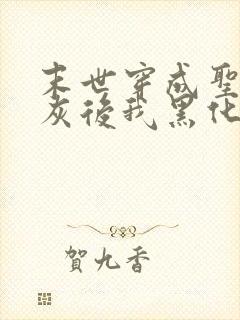 末世穿成聖
灰後我黑化
賀九香